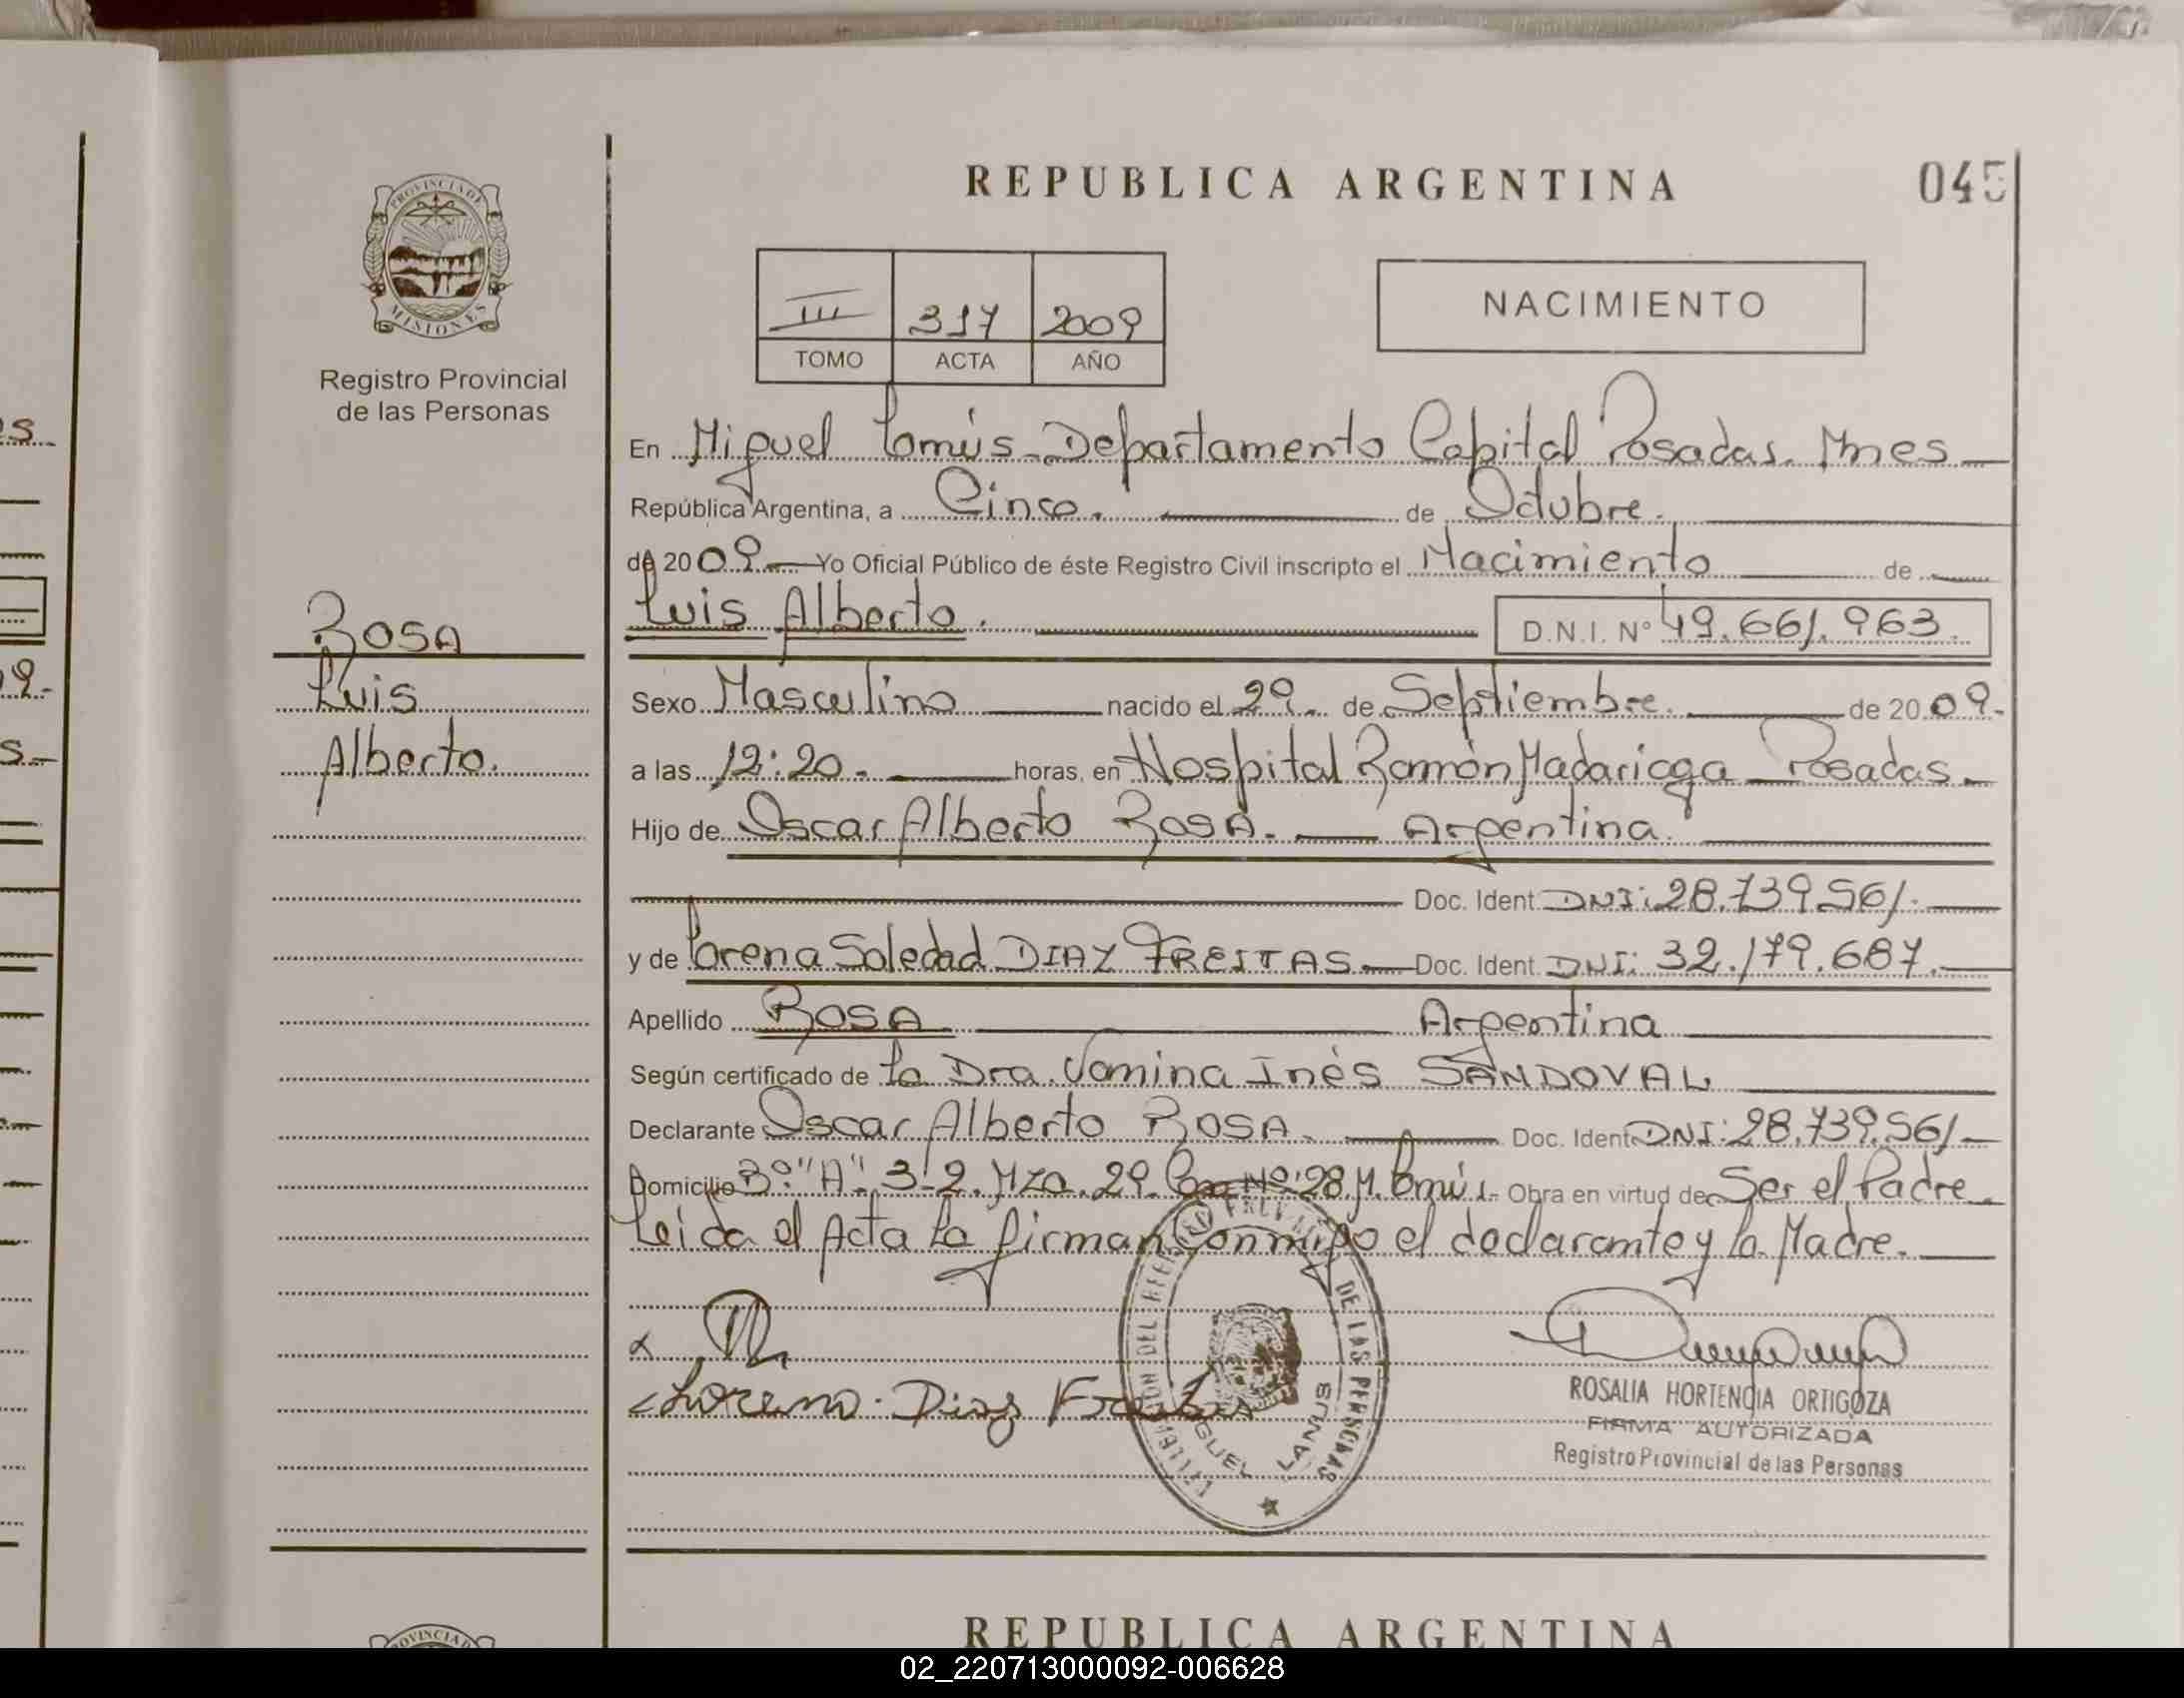 REPUBLICA ARGENTINA
045
PROVINCIA DE
MISIONES
Registro Provincial
de las Personas
III 317 2009
TOMO ACTA AÑO
NACIMIENTO
En Miguel Lanús - Departamento Capital Posadas. Mnes
República Argentina, a Cinco. de Octubre.
de 2009 Yo Oficial Público de éste Registro Civil inscripto el Nacimiento de
Luis Alberto. D.N.I. Nº 49.661.963.
ROSA
Luis
Alberto.
Sexo Masculino nacido el 29. de Septiembre. de 2009.
a las 12:20. horas, en Hospital Ramón Madariaga Posadas
Hijo de Oscar Alberto ROSA. Argentina.
Doc. Ident. DNI: 28.739.561.
y de Lorena Soledad DIAZ FREITAS Doc. Ident. DNI: 32.179.687.
Apellido ROSA Argentina
Según certificado de La Dra. Vanina Inés SANDOVAL
Declarante Oscar Alberto ROSA. Doc. Ident DNI: 28.739.561
Domicilio Bº "A" 3-2. Mza. 29. Casa Nº 28 M. Lanús. Obra en virtud de Ser el Padre
Leida el Acta La firman Conmigo el declarante y la Madre.
Lorena Diaz Freitas
DE LAS PERSONAS
MIGUEL LANUS
ROSALIA HORTENCIA ORTIGOZA
FIRMA AUTORIZADA
Registro Provincial de las Personas
REPUBLICA ARGENTINA
PROVINCIA
02_220713000092-006628